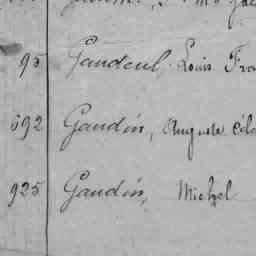 95 Gaudeul, Louis Fra
692 Gaudin, Auguste Célo
925 Gaudin, Michel